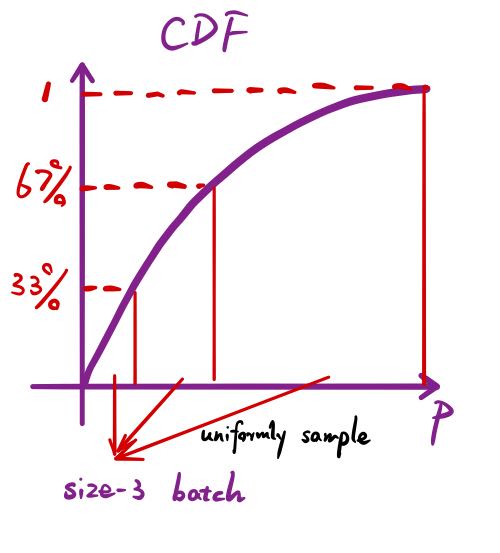 CDF
1
67%
33%
P
uniformly sample
size-3 batch